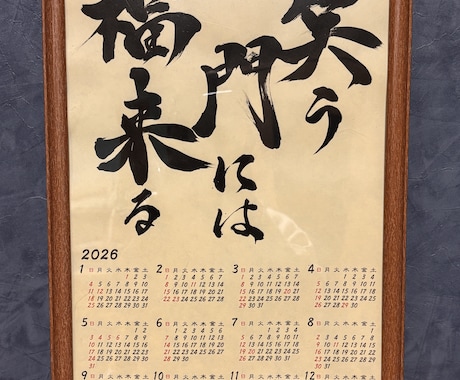 笑う
門には
福来る
2026
1
日 月 火 水 木 金 土
1 2 3
4 5 6 7 8 9 10
11 12 13 14 15 16 17
18 19 20 21 22 23 24
25 26 27 28 29 30 31
2
日 月 火 水 木 金 土
1 2 3 4 5 6 7
8 9 10 11 12 13 14
15 16 17 18 19 20 21
22 23 24 25 26 27 28
3
日 月 火 水 木 金 土
1 2 3 4 5 6 7
8 9 10 11 12 13 14
15 16 17 18 19 20 21
22 23 24 25 26 27 28
29 30 31
4
日 月 火 水 木 金 土
1 2 3 4
5 6 7 8 9 10 11
12 13 14 15 16 17 18
19 20 21 22 23 24 25
26 27 28 29 30
5
日 月 火 水 木 金 土
1 2
3 4 5 6 7 8 9
10 11 12 13 14 15 16
17 18 19 20 21 22 23
24 25 26 27 28 29 30
31
6
日 月 火 水 木 金 土
1 2 3 4 5 6
7 8 9 10 11 12 13
14 15 16 17 18 19 20
21 22 23 24 25 26 27
28 29 30
7
日 月 火 水 木 金 土
1 2 3 4
5 6 7 8 9 10 11
12 13 14 15 16 17 18
19 20 21 22 23 24 25
26 27 28 29 30 31
8
日 月 火 水 木 金 土
1
2 3 4 5 6 7 8
9 10 11 12 13 14 15
16 17 18 19 20 21 22
23 24 25 26 27 28 29
30 31
9
日 月 火 水 木 金 土
10
日 月 火 水 木 金 土
11
日 月 火 水 木 金 土
12
日 月 火 水 木 金 土